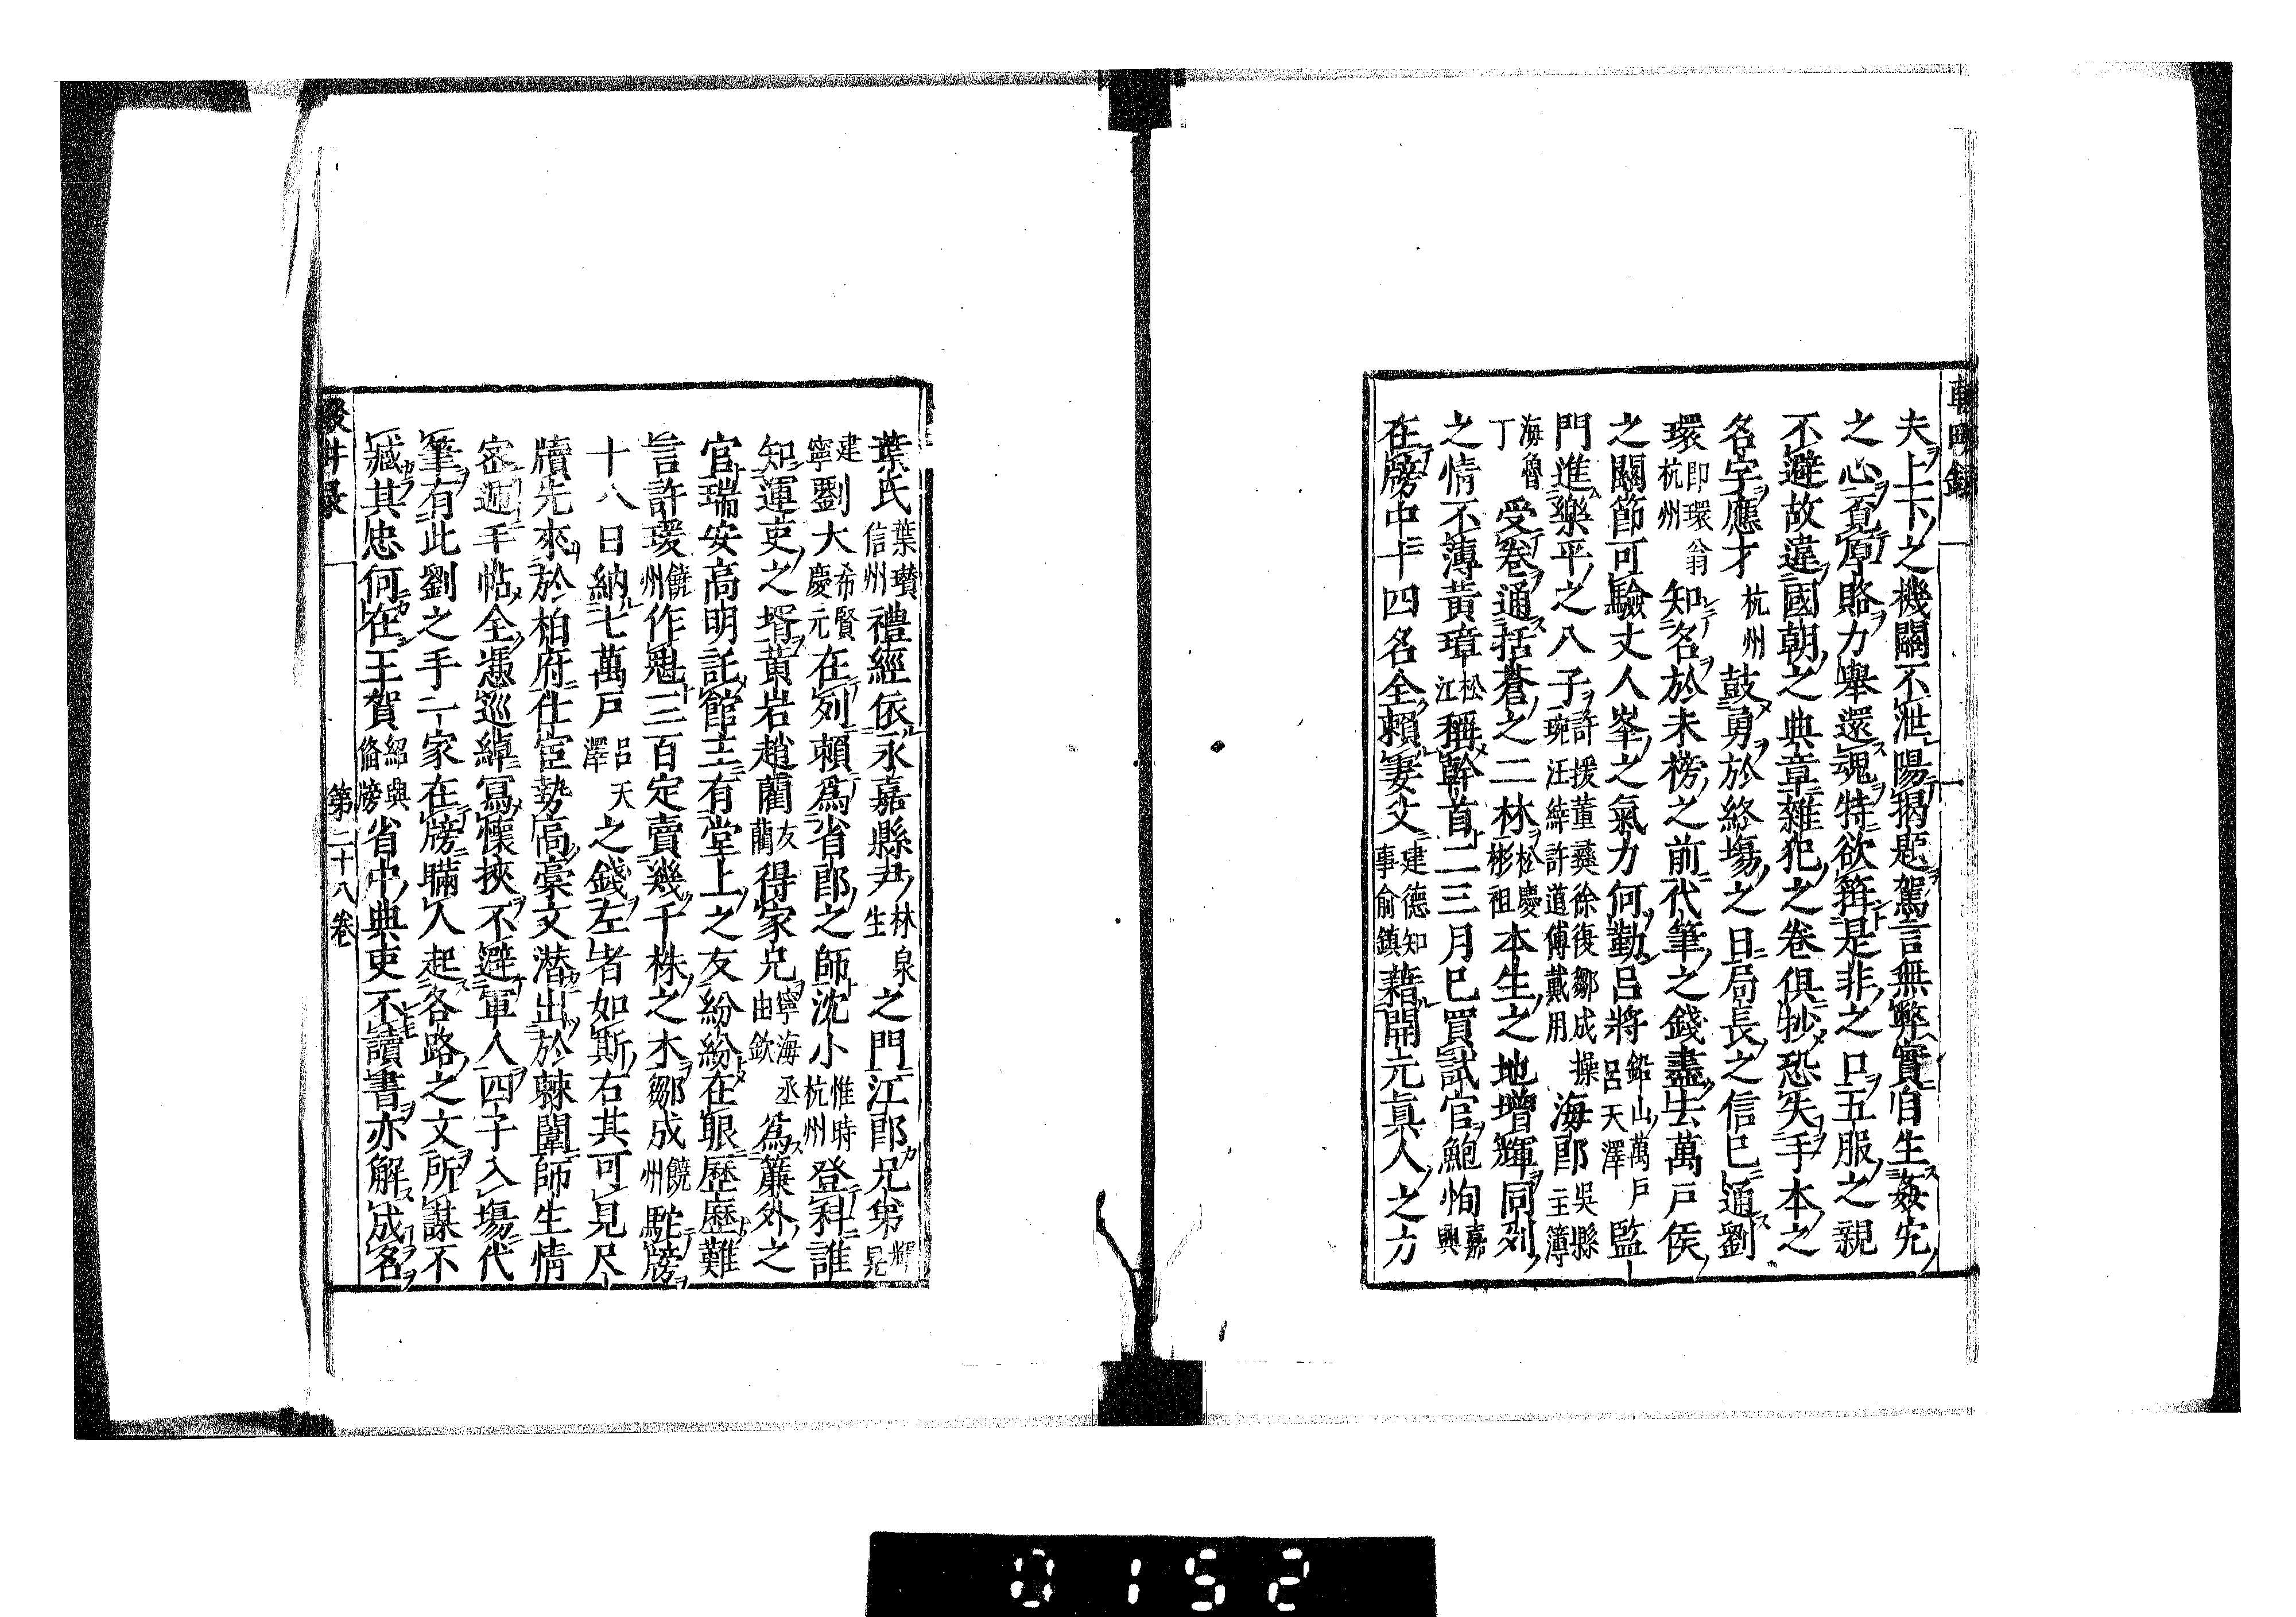 夫上下之機關不泄陽揭題駕言無弊實自生姦宄
之心覔厚賂力舉還魂特欲箝是非之口五服之親
不避故違國朝之典章雜犯之卷俱抄恐失手本之
名字應才杭州鼓勇於終塲之日局長之信已通劉
環即環翁杭州知名於未榜之前代筆之錢盡去萬戸侯
之關節可驗丈人峯之氣力何勤呂將鉛山萬戸呂天澤監
門進樂平之八子許瑗董彝徐復鄒成操琬汪緯許道傅戴用海郎吳縣主簿
海魯丁受卷通括蒼之二林松慶彬祖本生之地增輝同列
之情不薄黃璋松江稱幹首二三月已買試官鮑恂嘉興
在牓中十四名全賴妻父建德知事俞鎮藉開元眞人之方
葉氏葉瓚信州禮經依永嘉縣尹林泉生之門江郎兄弟輝晃
建寧劉大希賢慶元在列賴爲省郎之師沈小惟時杭州登科誰
知運吏之壻黃岩趙藺友藺得家兄寧海丞由欽爲簾外之
官瑞安高明託館主有堂上之友紛紛在眼歷歷難
言許瑗饒州作魁三百定賣幾千株之木鄒成饒州駝牓
十八日納七萬戸呂天澤之錢左者如斯右其可見尺
牘先來於柏府仕宦勢高藁文潜出於棘闈師生情
宻週平帖全憑巡綽寫懷挾不避軍人四子入塲代
筆有此劉之手二家在牓瞞人起各路之文所謀不
臧其忠何在王賀紹興俻牓省中典吏不讀書亦解成名
輟畊錄 第二十八卷